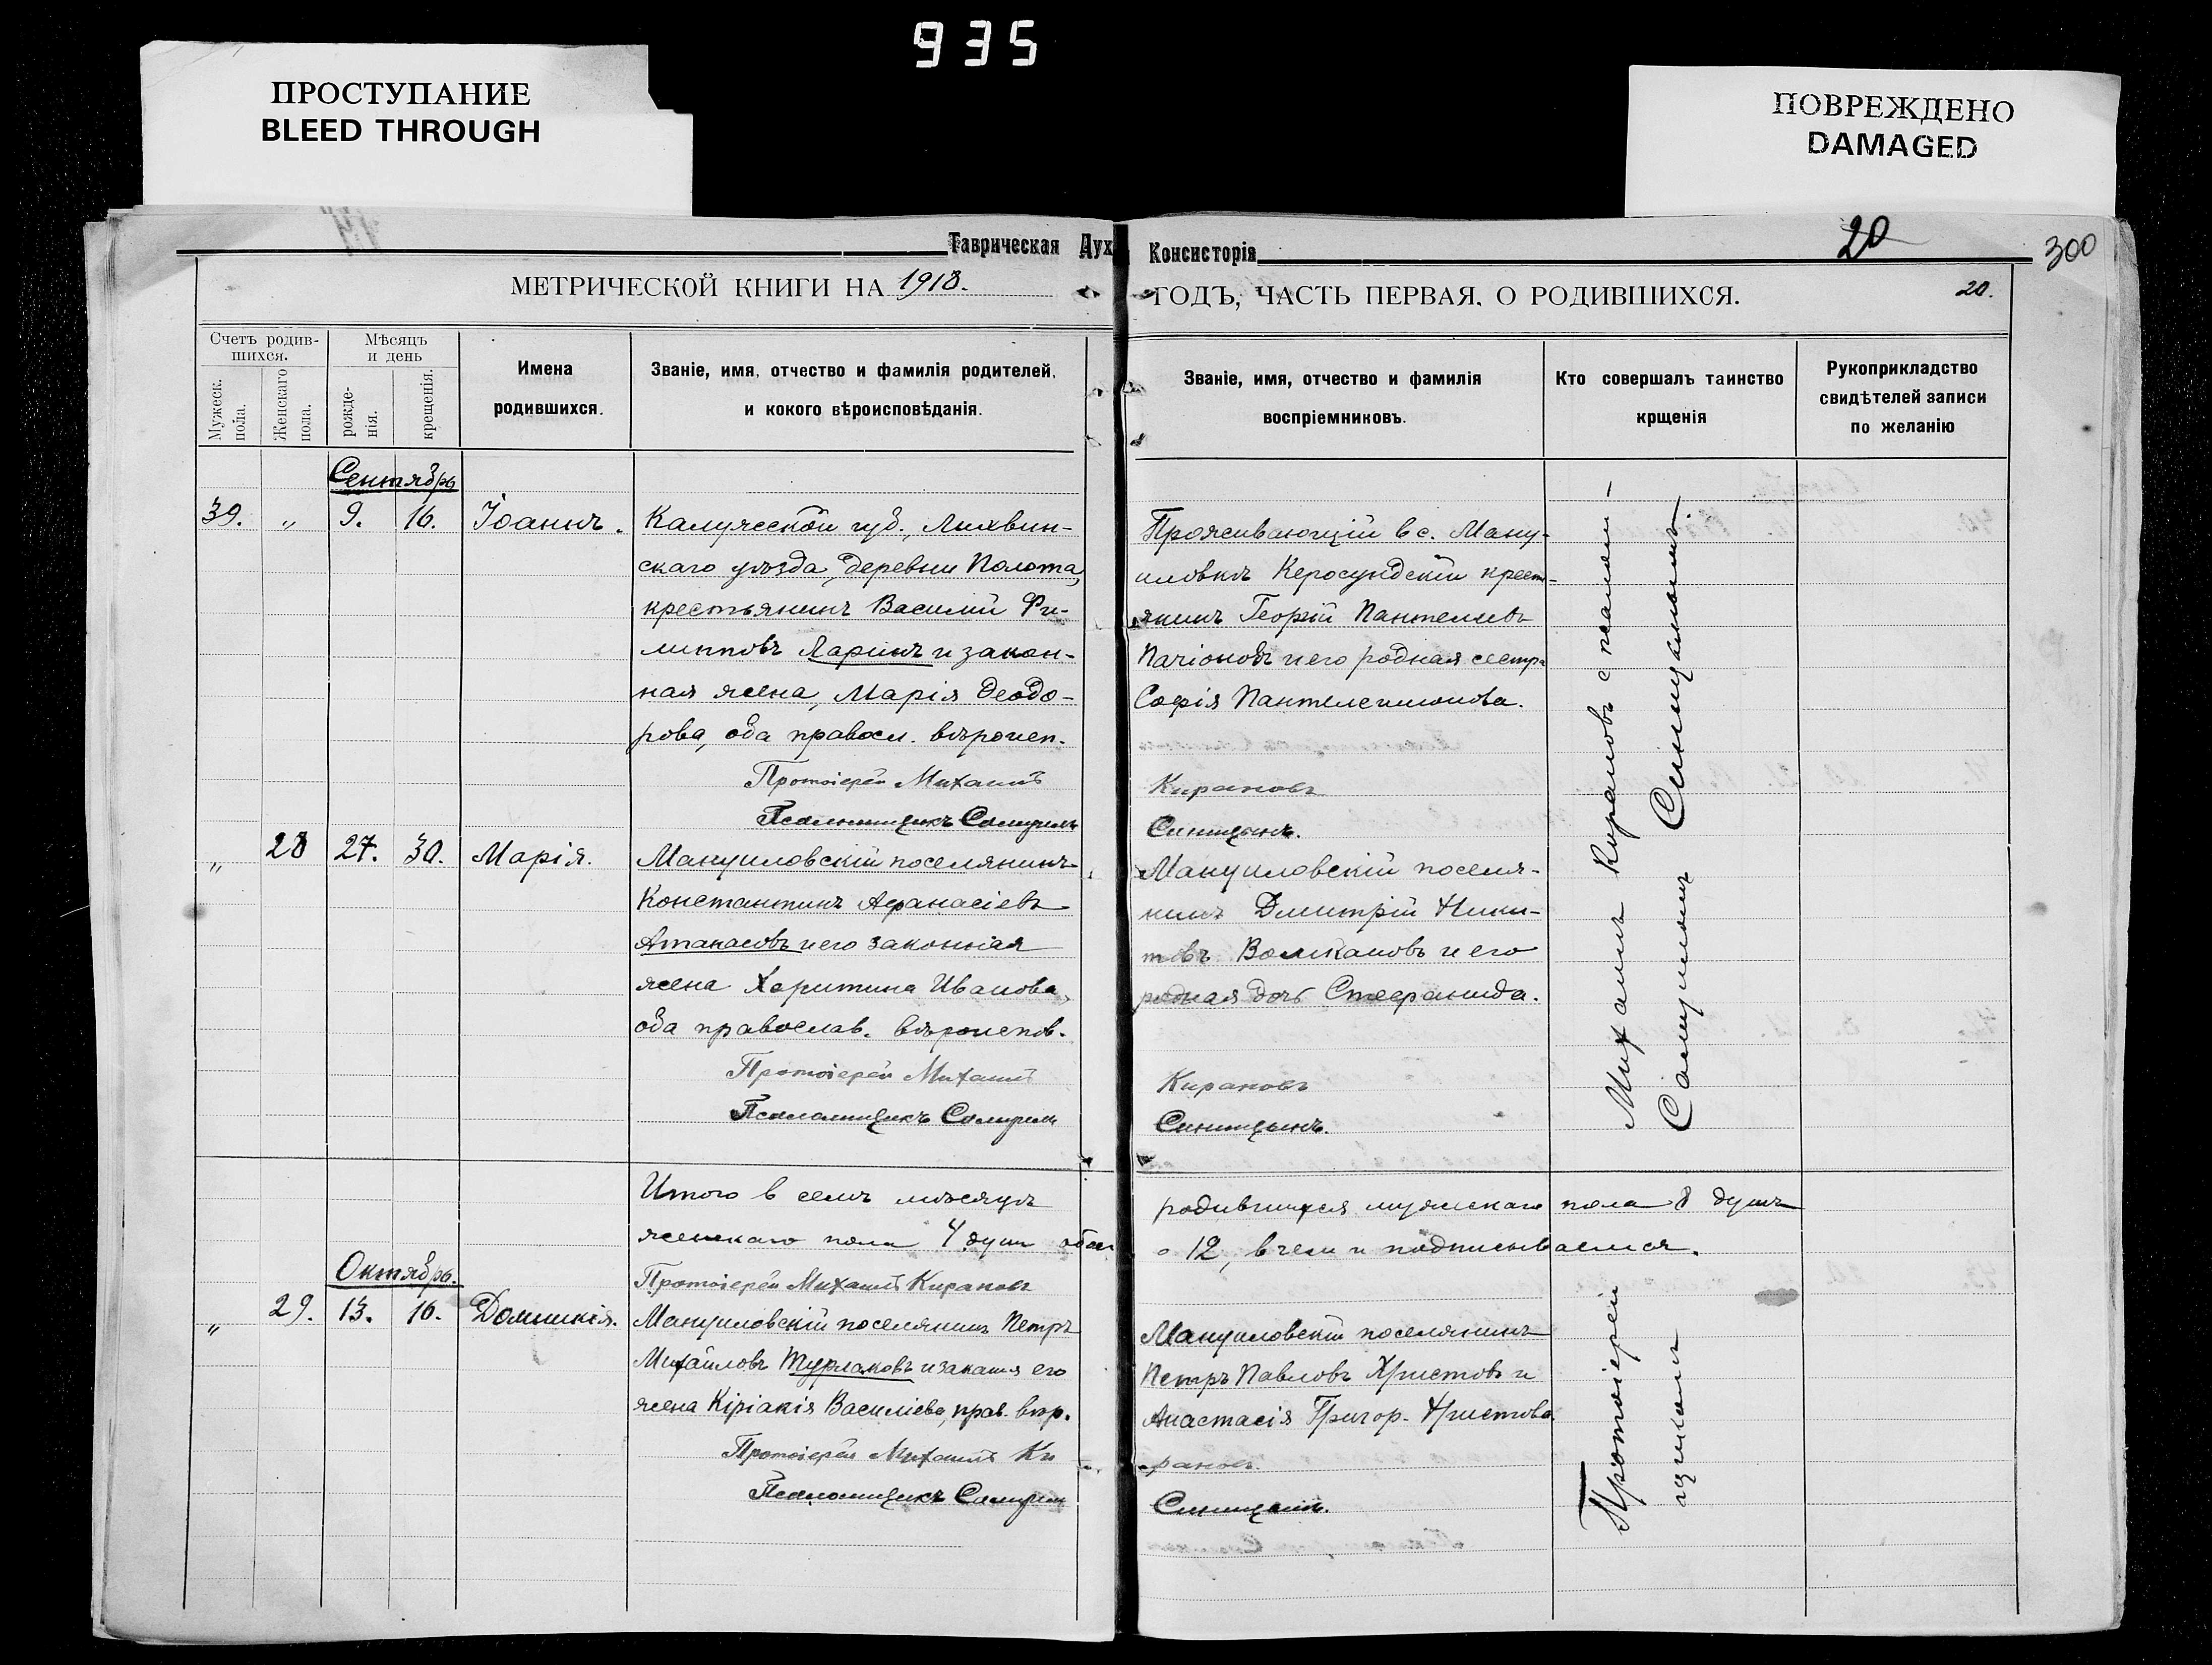 935
ПРОСТУПАНИЕ
BLEED THROUGH
ПОВРЕЖДЕНО
DAMAGED
Таврическая Дух
МЕТРИЧЕСКОЙ КНИГИ НА 1918.
Счетъ родив-
шихся.
Мужеск.
пола.
Женскаго
пола.
Мѣсяцъ
и день
рожде-
нія.
крещенія.
Имена
родившихся.
Званіе, имя, отчество и фамилія родителей,
и кокого вѣроисповѣданія.
Сентябрь
39. „ 9. 16. Іоаннъ.
Калужской губ., Лихвин-
скаго уѣзда, деревни Полота,
крестьянинъ Василій Фи-
липповъ Ларинъ и закон-
ная жена, Марія Ѳеодо-
рова, оба правосл. вѣроисп.
Протоіерей Михаилъ
Псаломщикъ Самуилъ
„ 28 27. 30. Марія.
Мануиловскій поселянинъ
Константинъ Аѳанасіевъ
Атанасовъ и его законная
жена Харитина Иванова,
оба православ. вѣроиспов.
Протоіерей Михаилъ
Псаломщикъ Самуилъ
Итого в семъ мѣсяцѣ
женскаго пола 4 душ обое
Октябрь.
Протоіерей Михаилъ Кирановъ
„ 29. 13. 16. Домникія.
Мануиловскій поселянинъ Петръ
Михайловъ Турлаковъ и законная его
жена Киріакія Василіева, прав. вѣр.
Протоіерей Михаилъ Ки
Псаломщикъ Самуилъ
Консисторія
20
300
ГОДЪ, ЧАСТЬ ПЕРВАЯ, О РОДИВШИХСЯ.
20.
Званіе, имя, отчество и фамилія
воспріемниковъ.
Кто совершалъ таинство
крщенія
Рукоприкладство
свидѣтелей записи
по желанію
Проживающій в с. Ману-
иловкѣ Керосундскій крест-
янинъ Георгій Пантелеевъ
и его родная сестра
Софія Пантелеимонова.
Кирановъ
Синицынъ.
Мануиловскій поселя-
нинъ Дмитрій Ники-
товъ Волкановъ и его
родная дочь Стефанида.
Кирановъ
Синицынъ.
родившихся мужскаго пола 8 душъ
о 12, в чемъ и подписываемся.
Мануиловскій поселянинъ
Петръ Павловъ Христовъ и
Анастасія Григор. Христова
рановъ.
Синицынъ.
Протоіерей Михаилъ Кирановъ с псалом-
щикомъ Самуиломъ Синицынымъ.